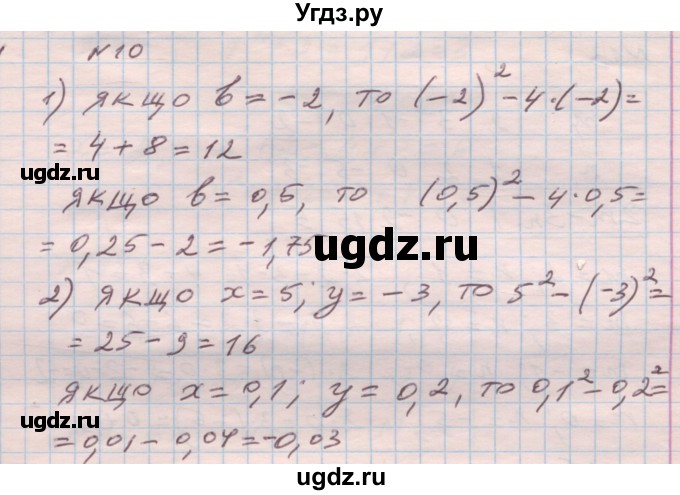 Угдз.ру
№10
1) якщо b = -2, то (-2)² - 4·(-2) =
= 4 + 8 = 12
угдз.ru
якщо b = 0,5, то (0,5)² - 4·0,5 =
= 0,25 - 2 = -1,75
угдз.ru
угдз.ru
2) якщо x = 5; y = -3, то 5² - (-3)² =
= 25 - 9 = 16
якщо x = 0,1; y = 0,2, то 0,1² - 0,2² =
= 0,01 - 0,04 = -0,03
угдз.ru